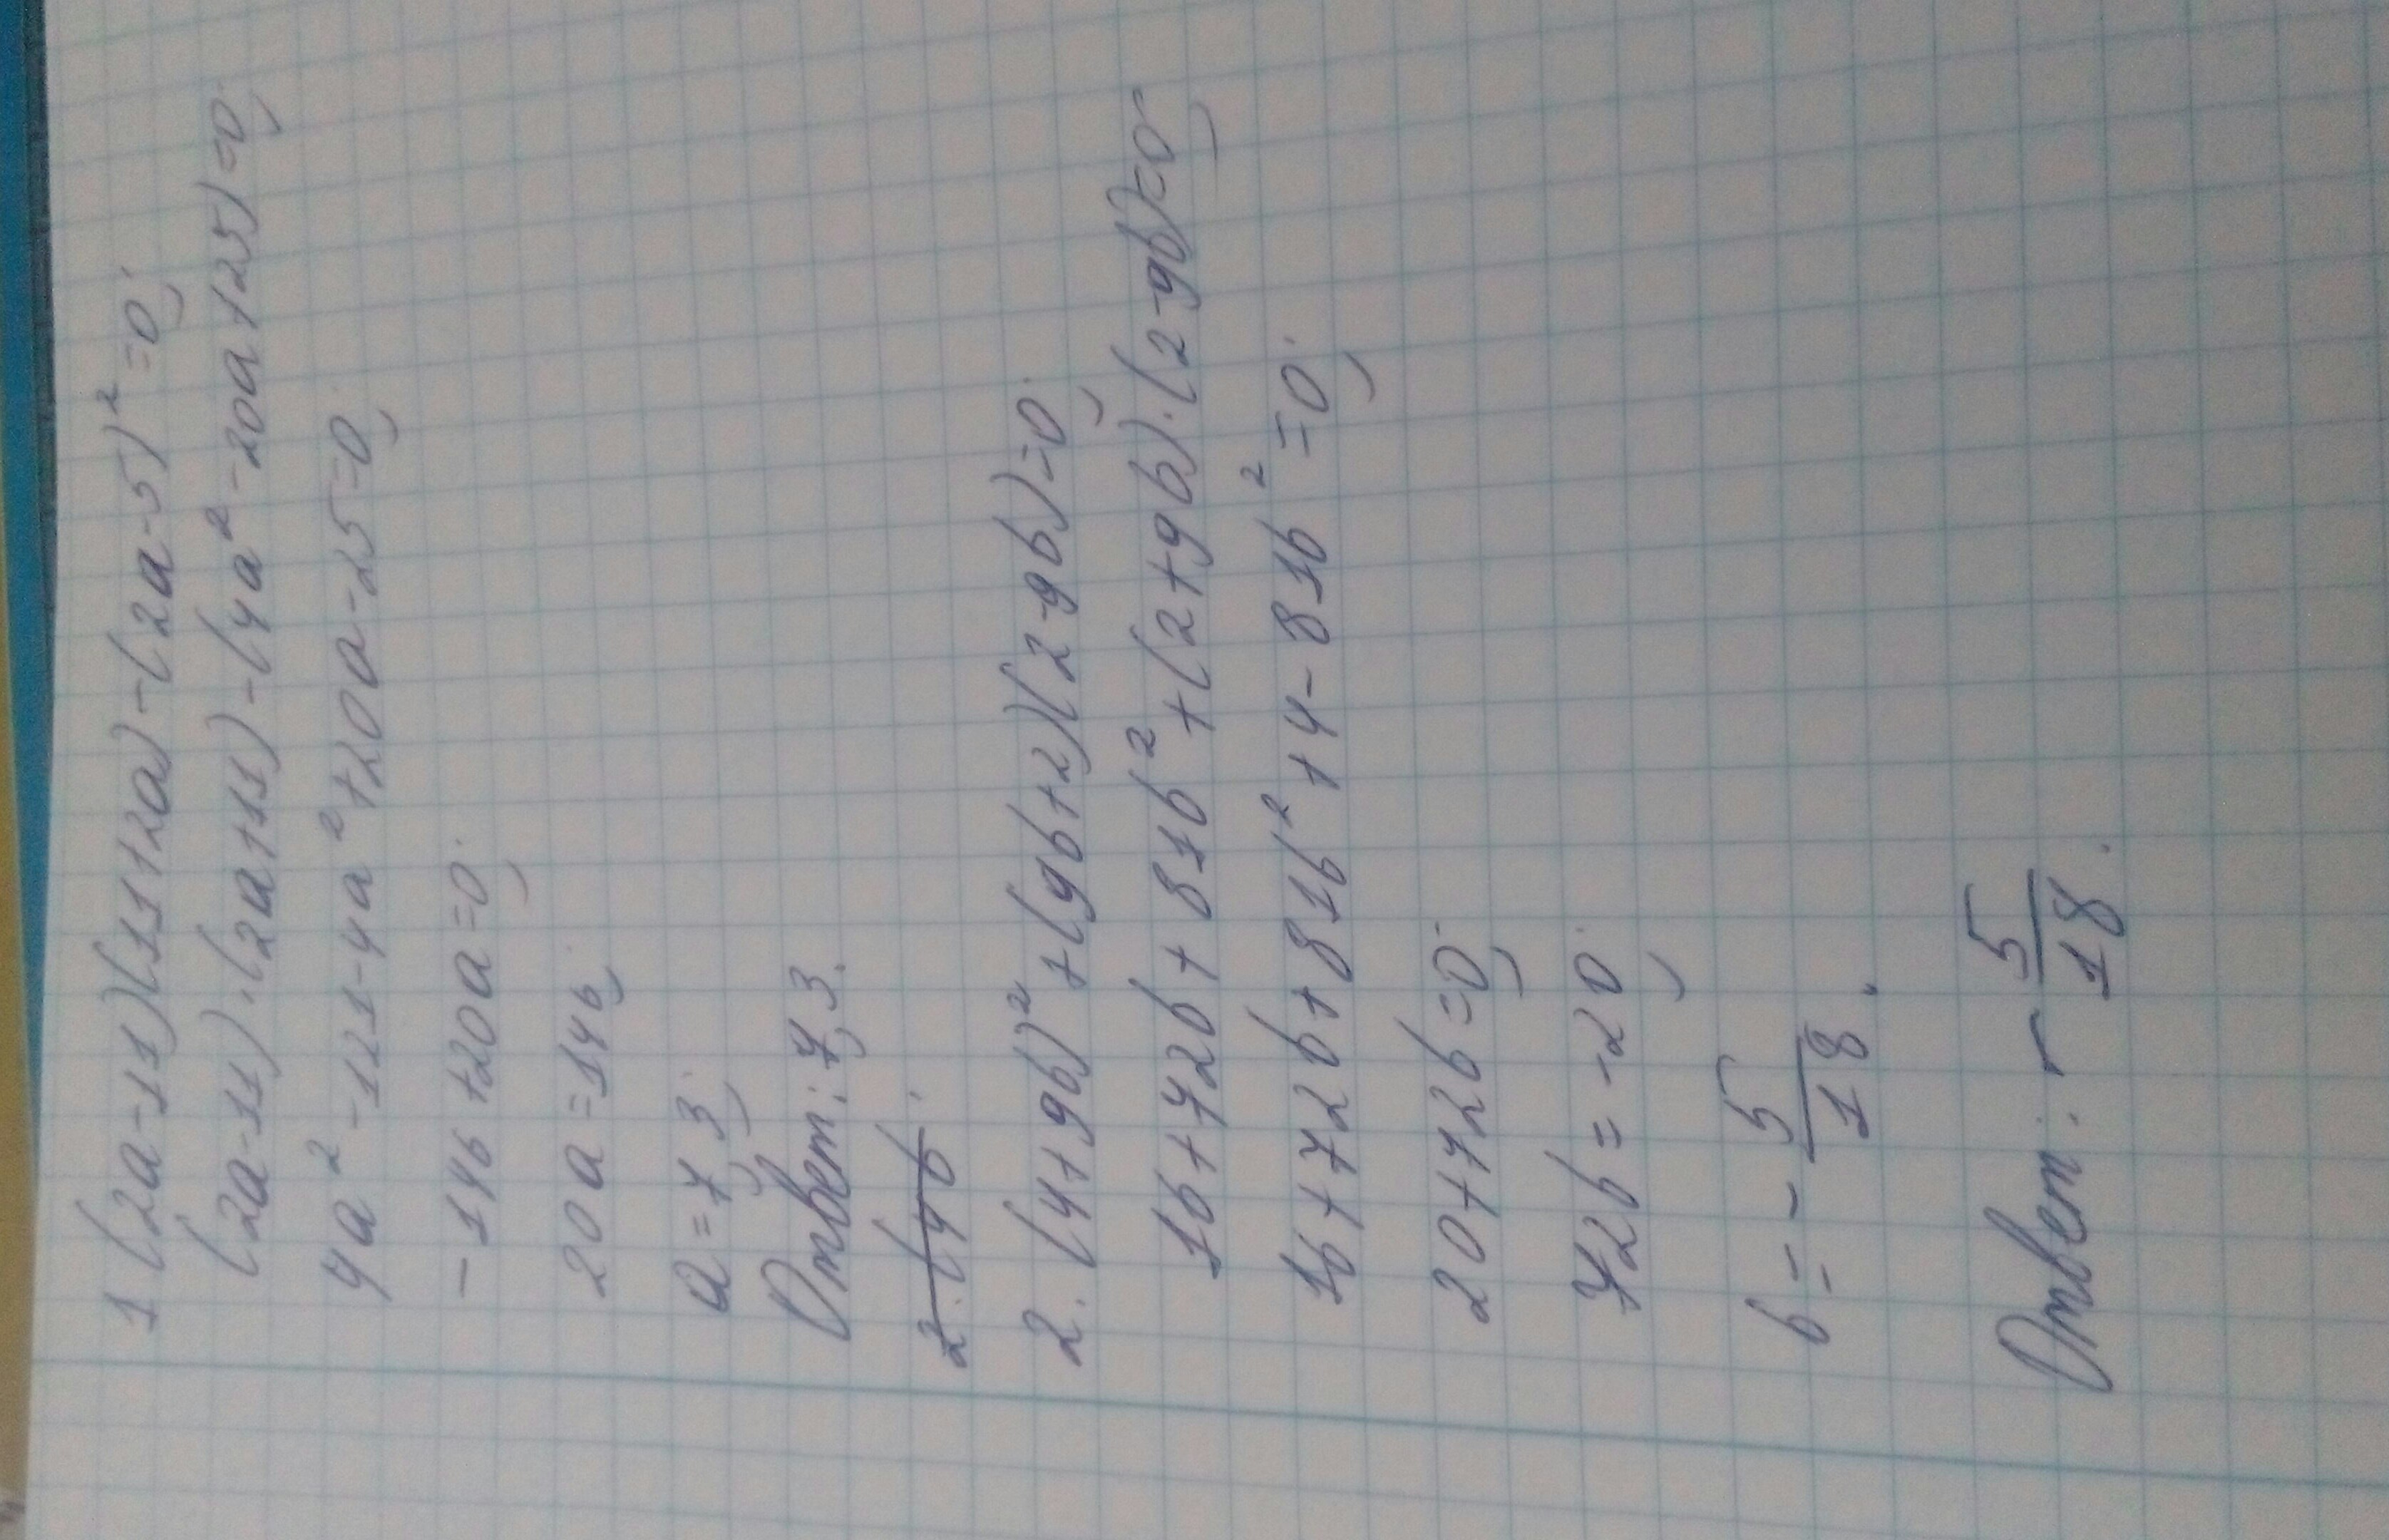 1 (2a-11)(11+2a)-(2a-5)²=0;
(2a-11)·(2a+11)-(4a²-20a+25)=0;
4a²-121-4a²+20a-25=0;
-146+20a=0;
20a=146;
a=7,3;
Ответ: 7,3.
2. (4+9b)²+(9b+2)(2-9b)=0;
16+72b+81b²+(2+9b)·(2-9b)=0;
16+72b+81b²+4-81b²=0;
20+72b=0;
72b=-20;
b=-5/18.
Ответ: -5/18.